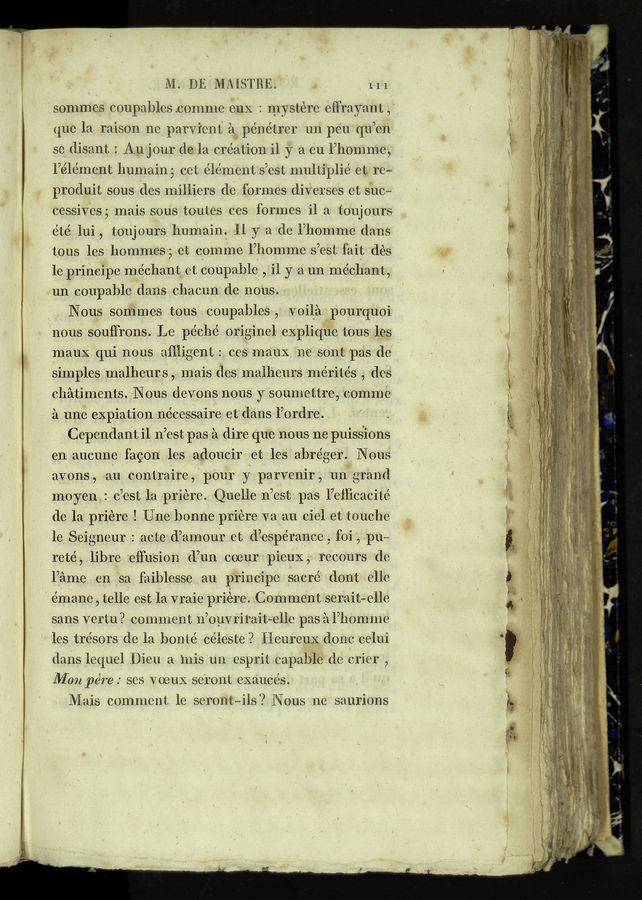 M. DE MAISTRE. 111
sommes coupables comme eux : mystère effrayant,
que la raison ne parvient à pénétrer un peu qu'en
se disant : Au jour de la création il y a eu l'homme,
l'élément humain ; cet élément s'est multiplié et re-
produit sous des milliers de formes diverses et suc-
cessives ; mais sous toutes ces formes il a toujours
été lui , toujours humain. Il y a de l'homme dans
tous les hommes ; et comme l'homme s'est fait dès
le principe méchant et coupable , il y a un méchant,
un coupable dans chacun de nous.
Nous sommes tous coupables , voilà pourquoi
nous souffrons. Le péché originel explique tous les
maux qui nous affligent : ces maux ne sont pas de
simples malheurs, mais des malheurs mérités , des
châtiments. Nous devons nous y soumettre, comme
à une expiation nécessaire et dans l'ordre.
Cependant il n'est pas à dire que nous ne puissions
en aucune façon les adoucir et les abréger. Nous
avons, au contraire, pour y parvenir, un grand
moyen : c'est la prière. Quelle n'est pas l'efficacité
de la prière ! Une bonne prière va au ciel et touche
le Seigneur : acte d'amour et d'espérance, foi, pu-
reté, libre effusion d'un cœur pieux, recours de
l'âme en sa faiblesse au principe sacré dont elle
émane, telle est la vraie prière. Comment serait-elle
sans vertu? comment n'ouvrirait-elle pas à l'homme
les trésors de la bonté céleste ? Heureux donc celui
dans lequel Dieu a mis un esprit capable de crier ,
Mon père : ses vœux seront exaucés.
Mais comment le seront-ils ? Nous ne saurions